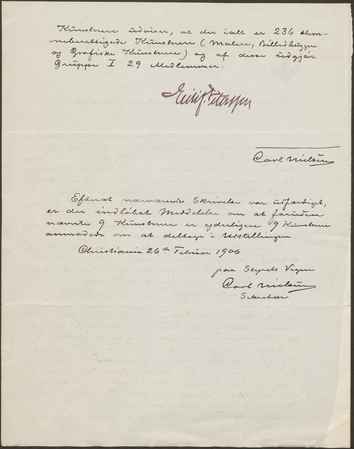 Kunstnere udviser, at der ialt er 236 stem-
meberettigede Kunstnere (Malere, Billedhuggere
og Grafiske Kunstnere) og af disse udgjør
Gruppe I 29 Medlemmer.
Eilif Peterssen
Carl
Efterat nærværende Skrivelse var udfærdiget,
er der indløbet Meddelelse om at foruden
nævnte 9 Kunstnere er yderligere 9 Kunstnere
om at deltage i Udstillingen
Christiania 26de Februar 1906
paa Styrets Vegne
Carl
Sekretær